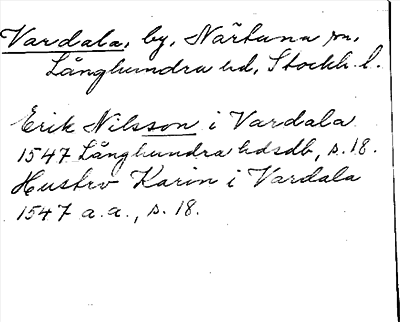 Vardala, by, Närtuna sn,
Långhundra hd, Stockh. l.
Erik Nilsson i Vardala
1547 Långhundra hdsdb, s. 18.
Hustrv Karin i Vardala
1547 a.a., s. 18.